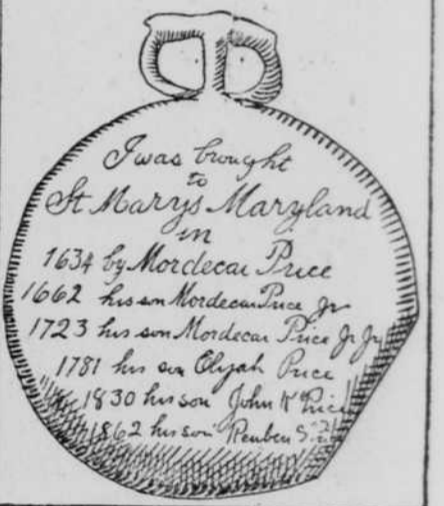 I was brought
to
St Marys Maryland
in
1634 by Mordecai Price
1662 his son Mordecai Price Jr
1723 his son Mordecai Price Jr Jr
1781 his son Elijah Price
1830 his son John K Price
1862 his son Reuben S